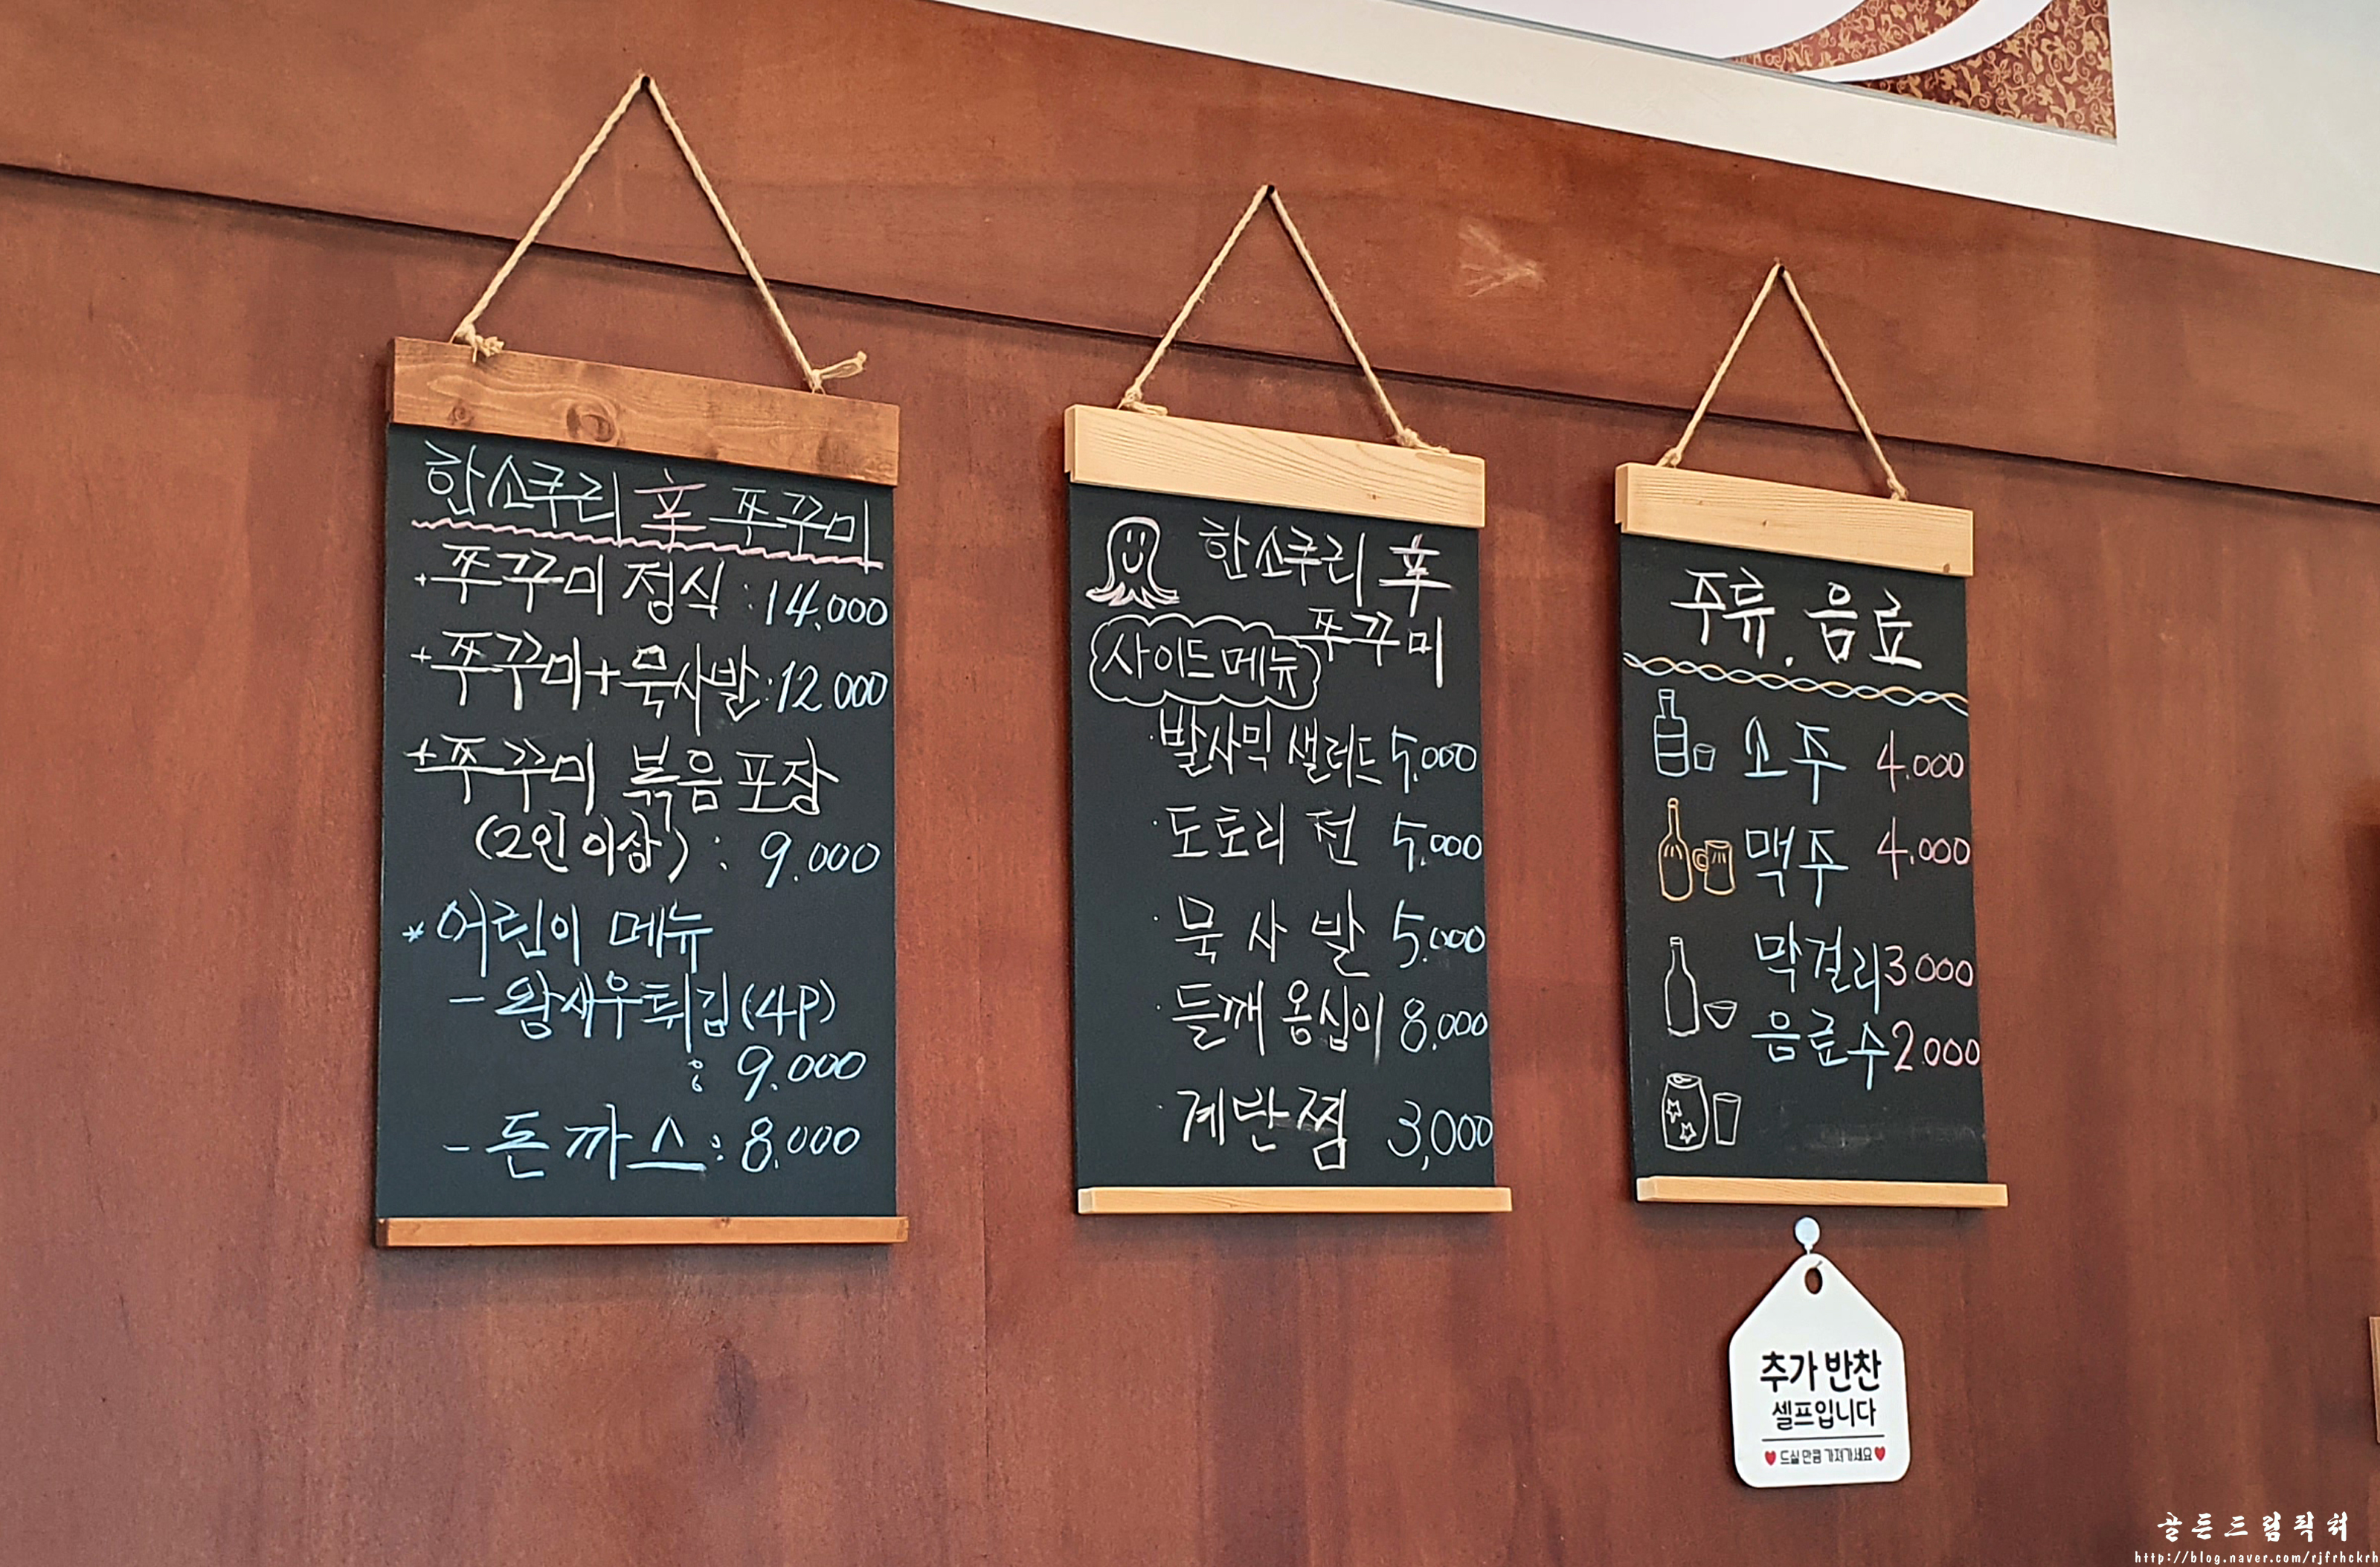 한소쿠리 辛 쭈꾸미
+쭈꾸미 정식 : 14,000
+쭈꾸미+묵사발 : 12.000
+쭈꾸미 볶음 포장
(2인 이상) : 9.000
* 어린이 메뉴
- 왕새우튀김(4P)
: 9.000
- 돈까스 : 8.000
한소쿠리 辛
쭈꾸미
사이드메뉴
· 발사믹 샐러드 5,000
· 도토리 전 5,000
· 묵 사 발 5.000
· 들깨 옹심이 8,000
· 계란찜 3,000
주류. 음료
소주 4.000
맥주 4.000
막걸리 3000
음료수 2.000
추가 반찬
셀프입니다
드실 만큼 가져가세요
골든드림픽쳐
http://blog.naver.com/rjfrhckrh